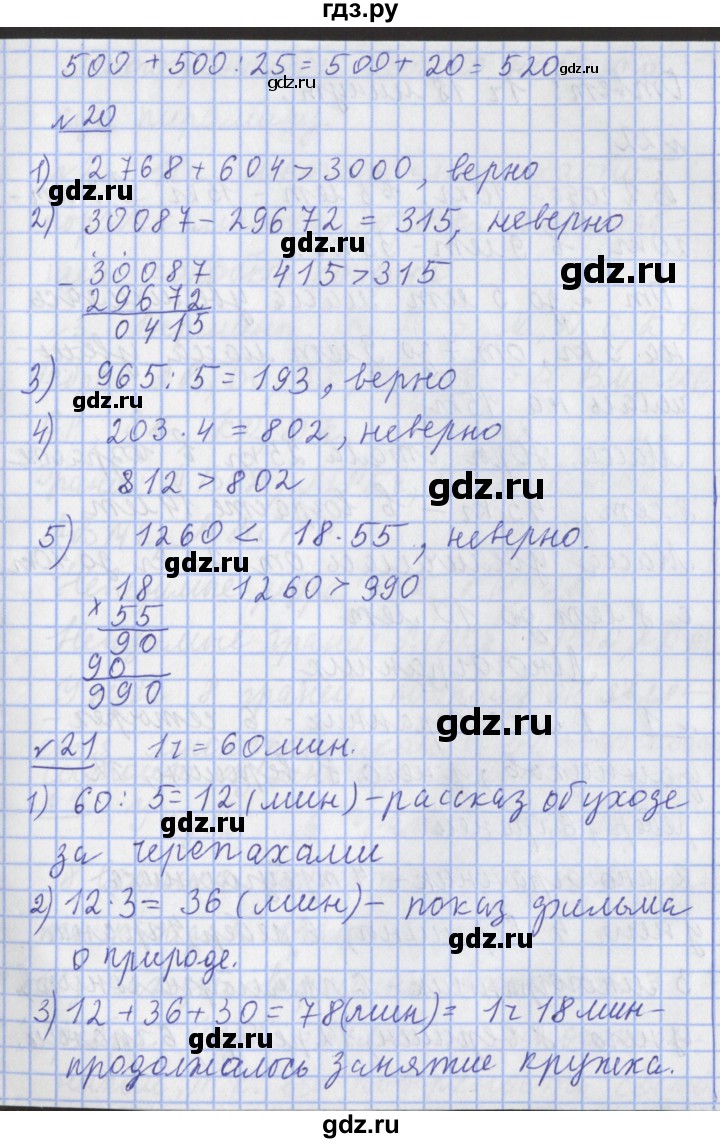 гдз.ру
500 + 500 : 25 = 500 + 20 = 520
gdz.ru gdz.ru
№ 20
1) 2768 + 604 > 3000, верно
gdz.ru
2) 30087 - 29672 = 315, неверно
gdz.ru
- 30087 415 > 315
gdz.ru
29672
0415
3) 965 : 5 = 193, верно
gdz.ru
4) 203 · 4 = 802, неверно
812 > 802
gdz.ru
5) 1260 < 18 · 55, неверно.
gdz.ru
18 1260 > 990
× 55
90
90
990
gdz.ru
№ 21 1 ч = 60 мин.
1) 60 : 5 = 12 (мин) - рассказ об уходе
gdz.ru
за черепахами
2) 12 · 3 = 36 (мин) - показ фильма
gdz.ru
о природе.
3) 12 + 36 + 30 = 78 (мин) = 1 ч 18 мин -
gdz.ru
продолжалось занятие кружка.
gdz.ru